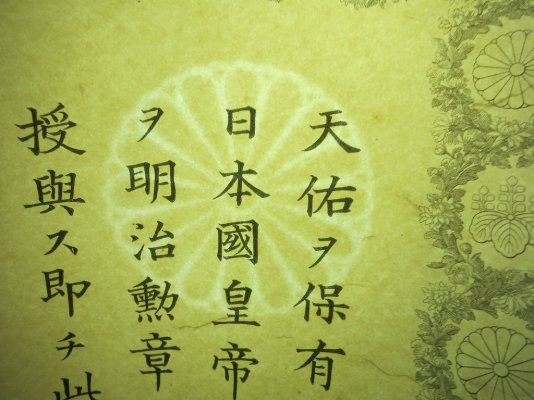 天佑ヲ保有
日本國皇帝
ヲ明治勲章
授與ス即チ此